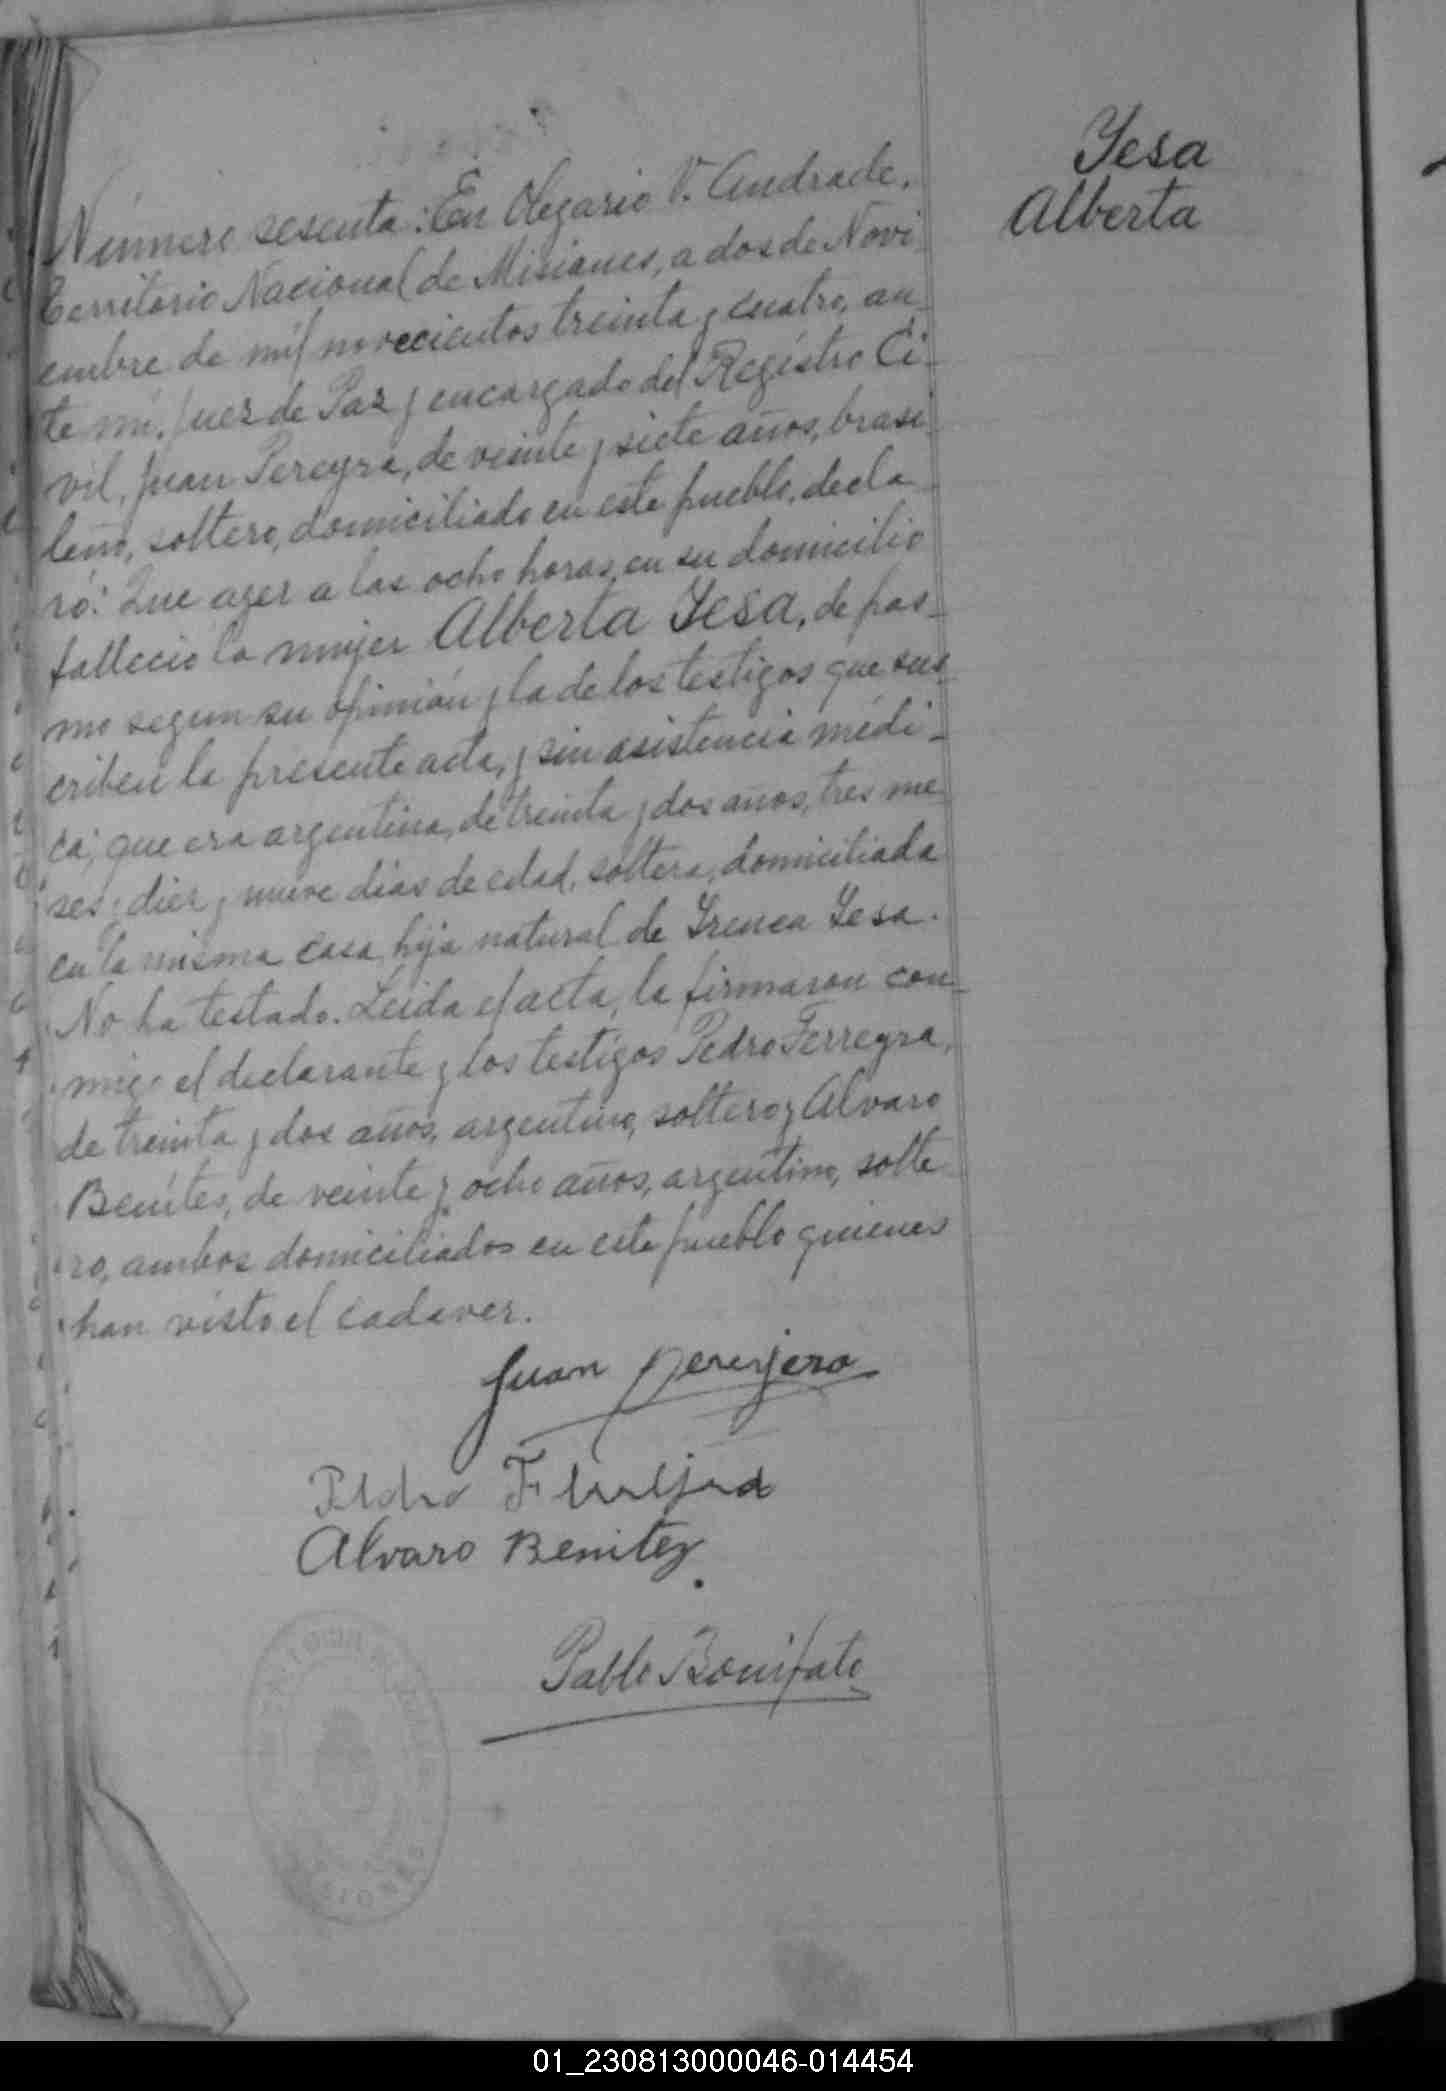 Yesa
Alberta
Número sesenta: En Olegario V. Andrade,
Territorio Nacional de Misiones, a dos de Novi-
embre de mil novecientos treinta y cuatro, an-
te mi, Juez de Paz y encargado del Registro Ci-
vil, Juan Pereyra, de veinte y siete años, brasi-
leño, soltero, domiciliado en este pueblo, decla-
ró: Que ayer a las ocho horas, en su domicilio
fallecio la mujer Alberta Yesa, de pas-
mo segun su opinión y la de los testigos que sus-
criben la presente acta, y sin asistencia médi-
ca; que era argentina, de treinta y dos años, tres me-
ses y diez y nueve dias de edad, soltera, domiciliada
en la misma casa, hija natural de Yrenea Yesa.
No ha testado. Leida el acta, la firmaron con-
migo el declarante y los testigos Pedro Ferreyra,
de treinta y dos años, argentino, soltero y Alvaro
Benites, de veinte y ocho años, argentino, solte-
ro, ambos domiciliados en este pueblo quienes
han visto el cadaver.
Juan
Pedro
Alvaro Benitez
Pablo Bonifato
01_230813000046-014454